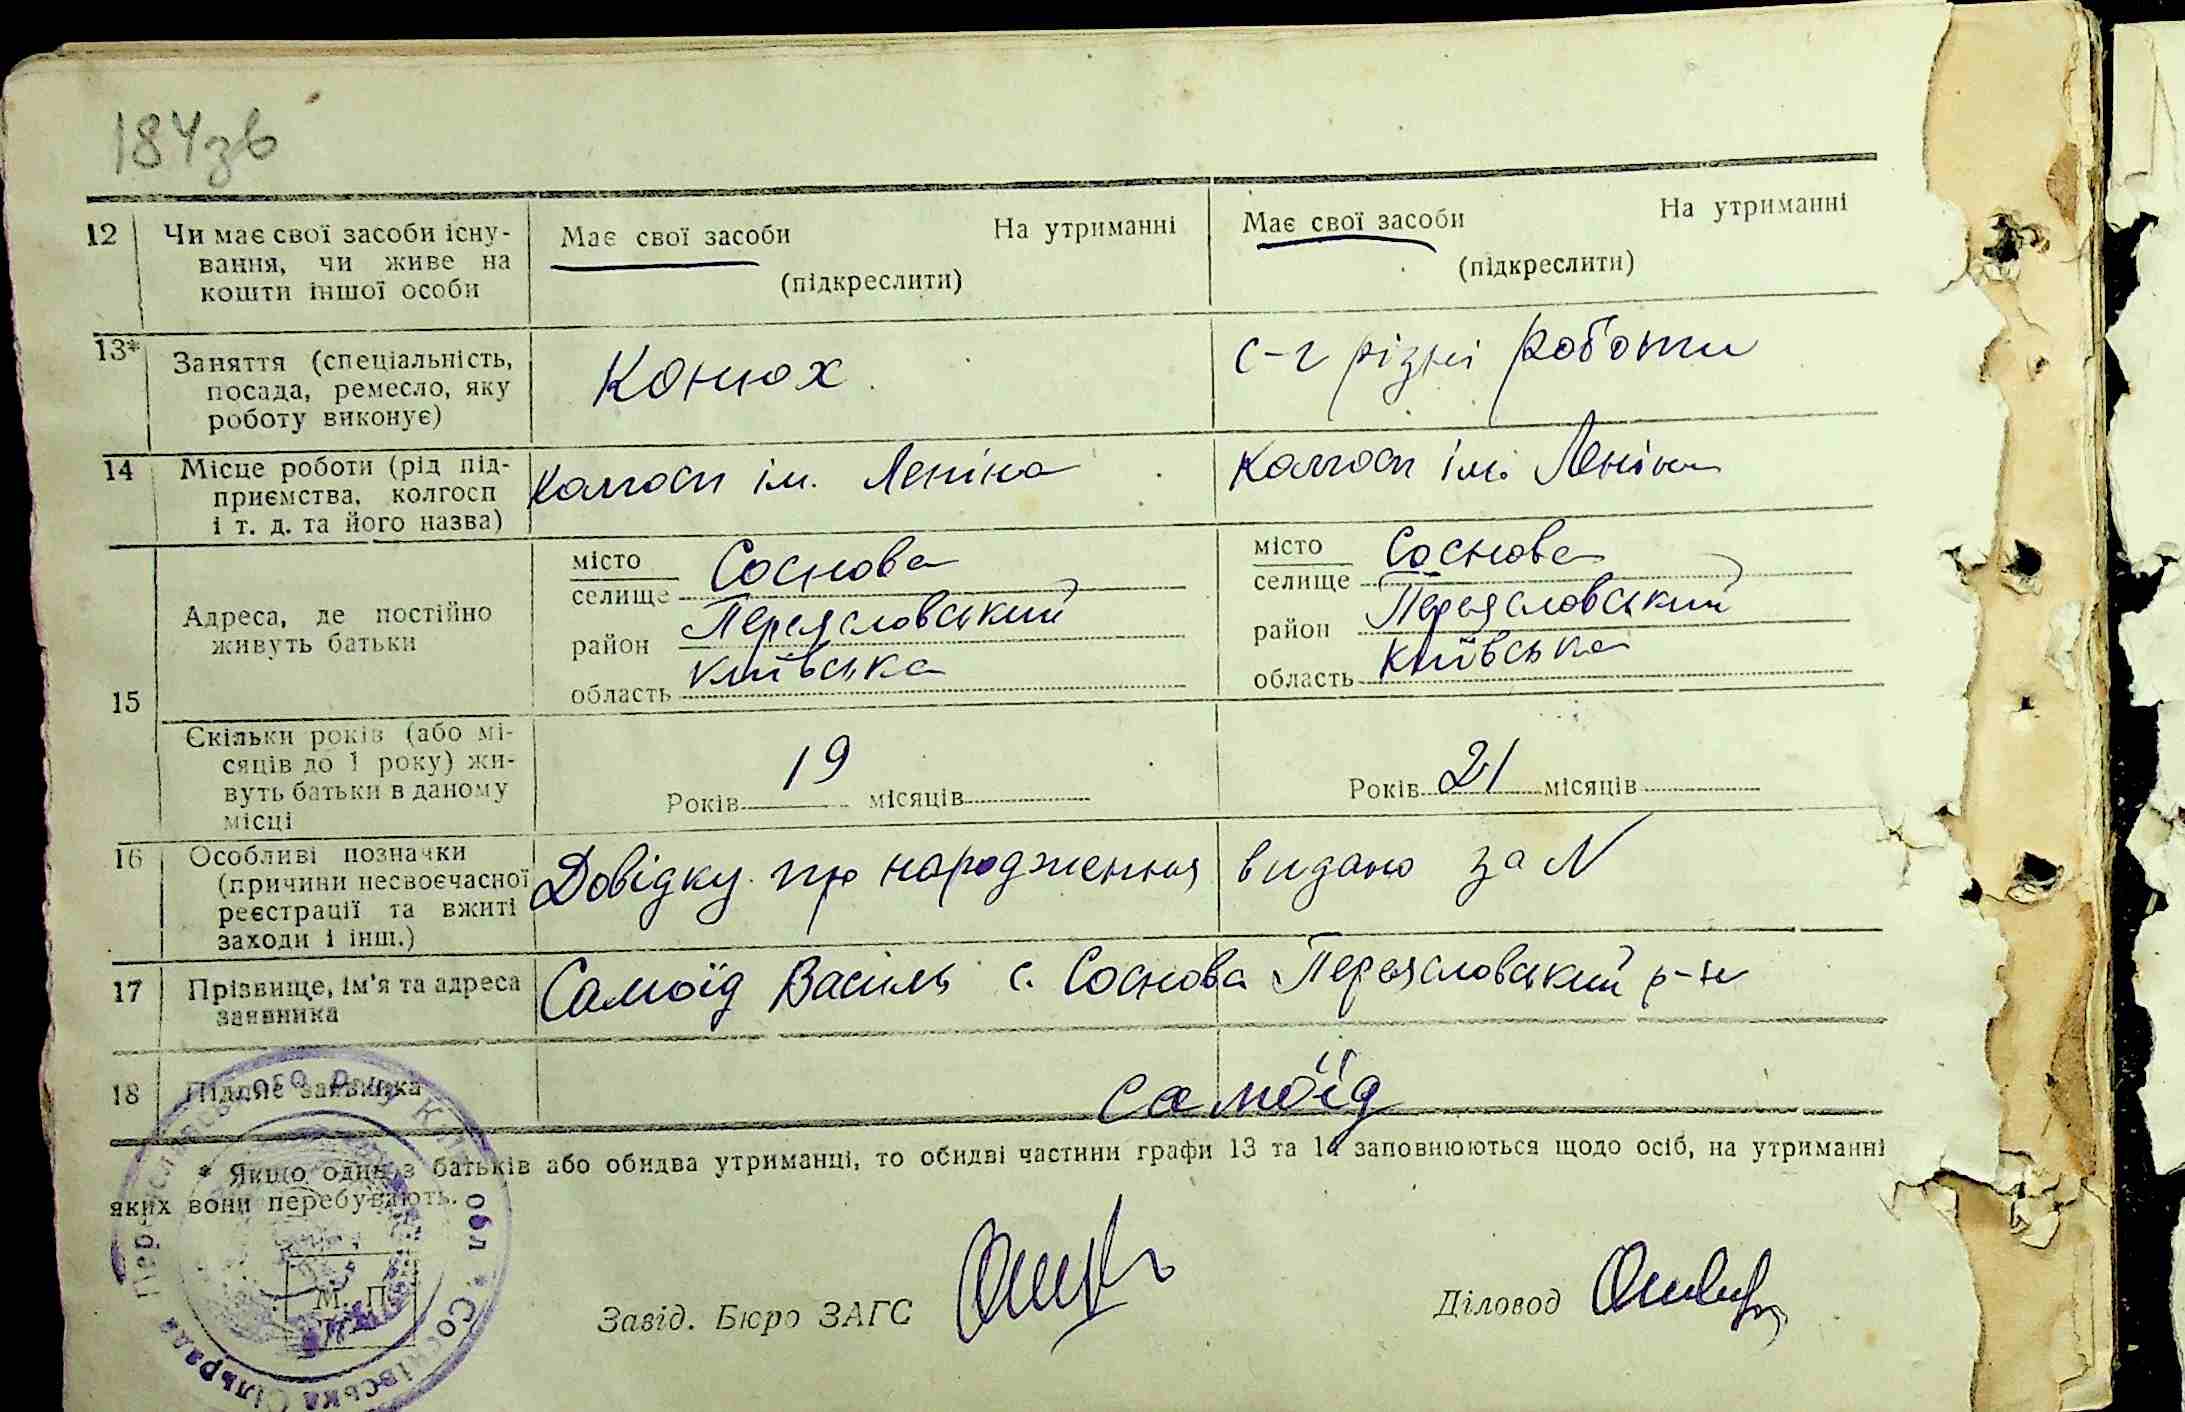 184зв
12 Чи має свої засоби існу- Має свої засоби На утриманні Має свої засоби На утриманні
вання, чи живе на (підкреслити) (підкреслити)
кошти іншої особи
13* Заняття (спеціальність, Конюх с-г різні роботи
посада, ремесло, яку
роботу виконує)
14 Місце роботи (рід під- Колгосп ім. Леніна Колгосп ім. Леніна
приємства, колгосп
і т. д. та його назва)
15 Адреса, де постійно місто Соснова місто Соснова
живуть батьки селище селище
район Переяславський район Переяславський
область Київська область Київська
Скільки років (або мі-
сяців до 1 року) жи-
вуть батьки в даному Років 19 місяців Років 21 місяців
місці
16 Особливі позначки Довідку про народження видано за N
(причини несвоєчасної
реєстрації та вжиті
заходи і інш.)
17 Прізвище, ім'я та адреса Самоїд Василь с. Соснова Переяславський р-н
заявника
18 Підпис заявника Самоїд
* Якщо один з батьків або обидва утриманці, то обидві частини графи 13 та 14 заповнюються щодо осіб, на утриманні
яких вони перебувають.
М. П.
Завід. Бюро ЗАГС Діловод
обл * Соснівська Сільрада